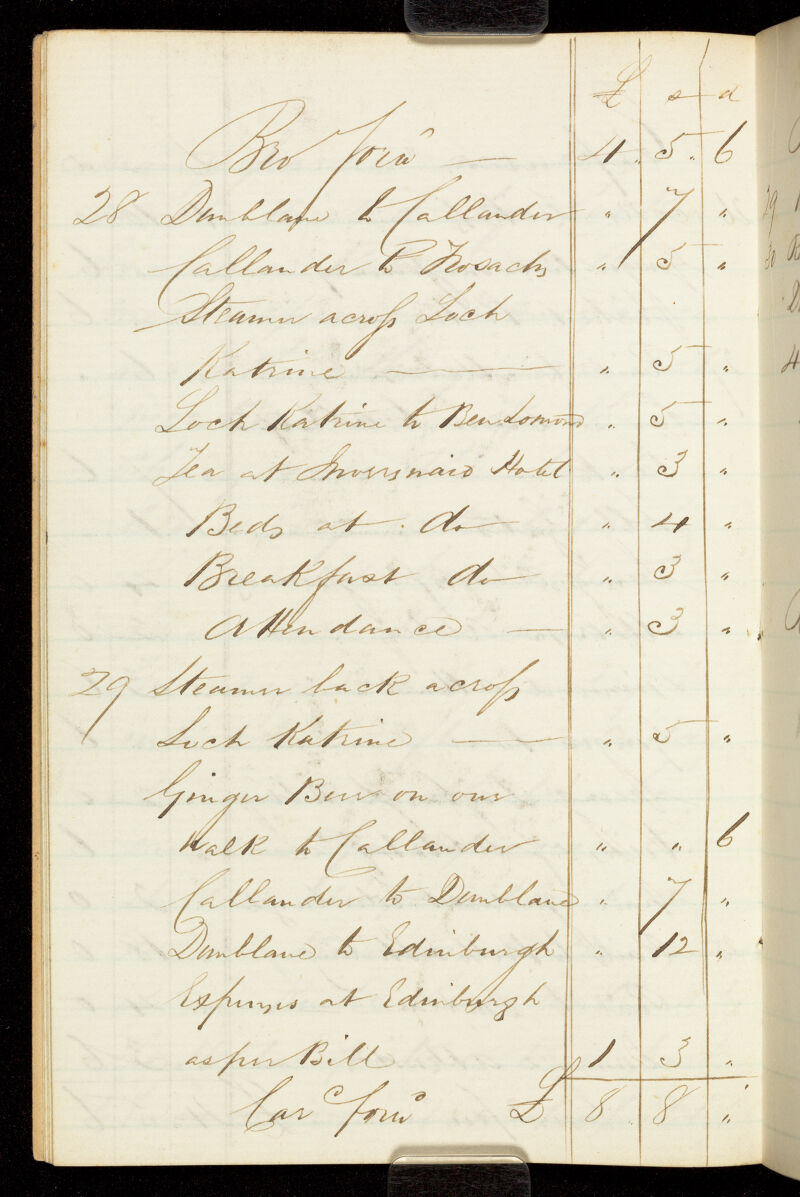 £ s d
Bro Forw^d — 4 „ 5 „ 6
28 Dunblane to Callander „ 7 „
Callander to Trosachs „ 5 „
Steamer across Loch
Katrine — „ 5 „
Loch Katrine to Ben Lomond „ 5 „
Tea at Inversnaid Hotel „ 3 „
Beds at do „ 4 „
Breakfast do „ 3 „
Attendance — „ 3 „
29 Steamer back across
Loch Katrine — „ 5 „
Ginger Beer on our
walk to Callander „ „ 6
Callander to Dunblane „ 7 „
Dunblane to Edinburgh „ 12 „
Expenses at Edinburgh
as per Bill 1 3 „
Car^d forw^d £ 8 „ 8 „
29
30
4